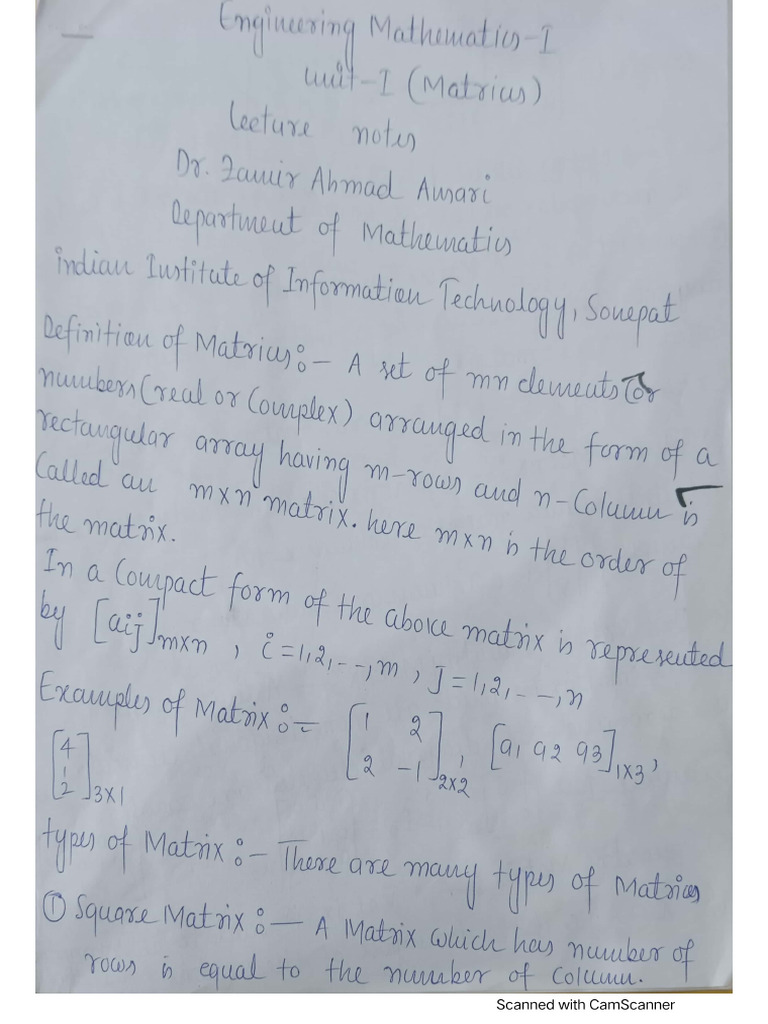 Engineering Mathematics-I
Unit-I (Matrices)
Lecture notes
Dr. Zamir Ahmad Ansari
Department of Mathematics
indian Institute of Information Technology, Sonepat
Definition of Matrices:- A set of mn elements (or
numbers (real or Complex) arranged in the form of a
rectangular array having m-rows and n-Column is
Called an m×n matrix. here m×n is the order of
the matrix.
In a Compact form of the above matrix is represented
by [aij]m×n , i=1,2,--,m , J=1,2,--,n
Examples of Matrix:- [1 2 2 -1]2×2, [a1 a2 a3]1×3,
[4 1 2]3×1
types of Matrix:- There are many types of Matrices
① Square Matrix:- A Matrix which has number of
rows is equal to the number of Column.
Scanned with CamScanner